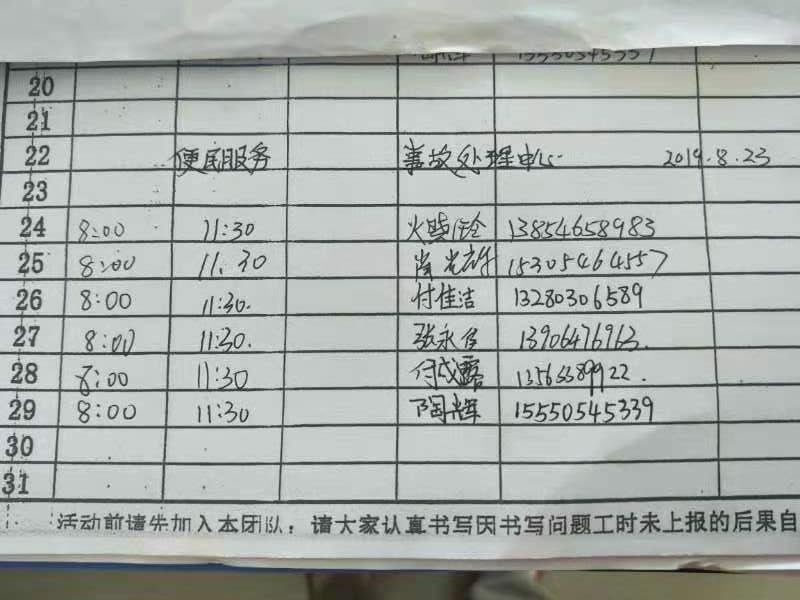 20
21
22 便民服务 事故处理中心 2019.8.23
23
24 8:00 11:30 13854658983
25 8:00 11.30 15305464557
26 8:00 11:30. 付佳洁 13280306589
27 8:00 11:30. 张永 13906476963.
28 8:00 11:30 付成露 13563389922.
29 8:00 11:30 陶辉 15550545339
30
31
活动前请先加入本团队；请大家认真书写因书写问题工时未上报的后果自